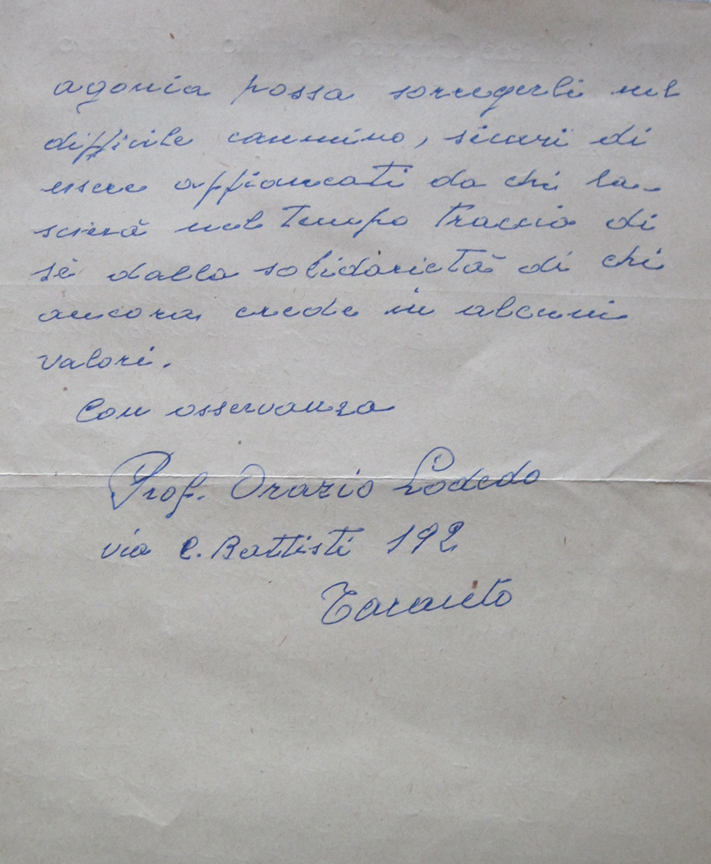 agonia possa sorreggerli nel
difficile cammino, sicuri di
essere affiancati da chi la-
scierà nel tempo traccia di
sè dalla solidarietà di chi
ancora crede in alcuni
valori.
Con osservanza
Prof. Orazio Lodedo
via C. Battisti 192
Taranto